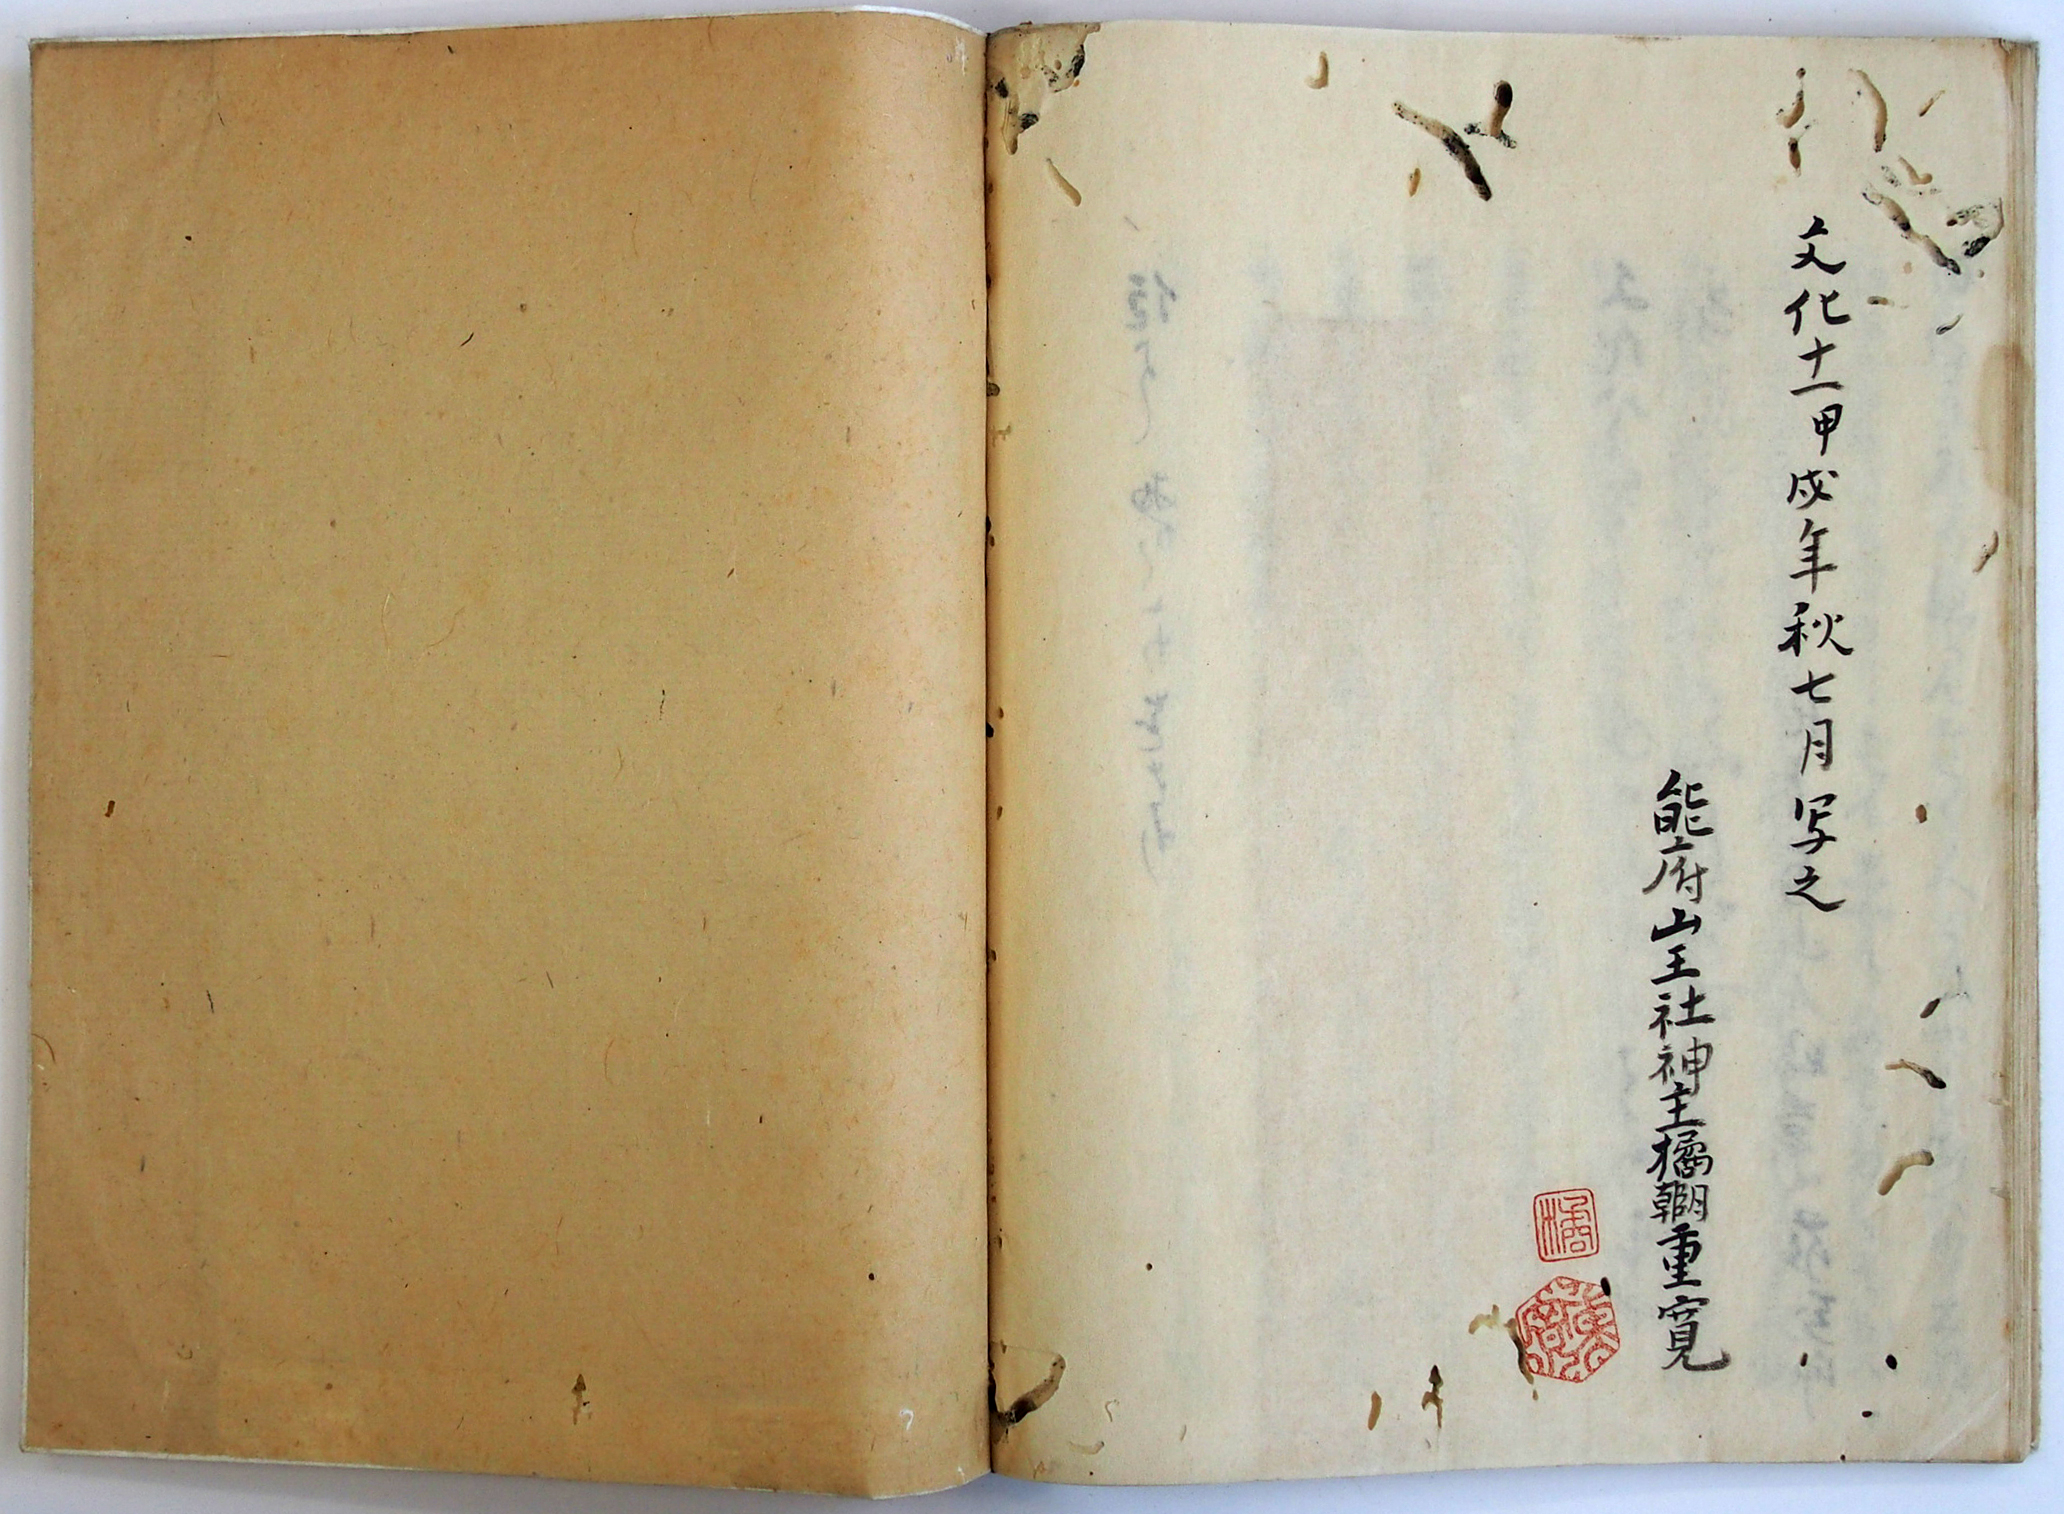 文化十一甲戌年秋七月写之
能府山王社神主橘朝臣重寛
橘